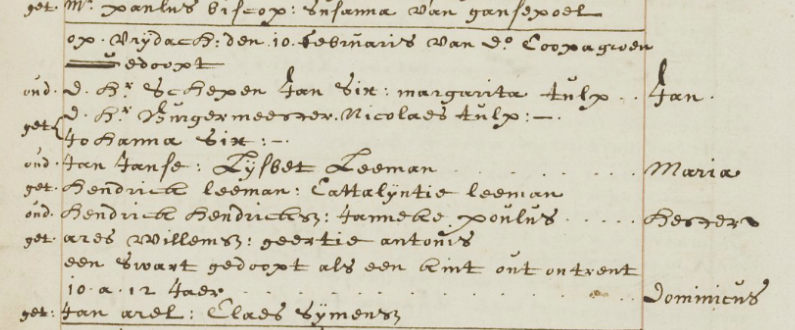 get. Mr. paulus biscop: susanna van gansepoel
op. vrydach: den. 10. februaris van do. Coop a groen
gedoopt
oud. d. hr. schepen Jan Six: margarita tulp .. Jan.
get. d. hr. burgermeester. Nicolaes tulp: —.
Johanna Six: —.
oud. Jan Janse: Lÿsbet Leeman . . . . . . Maria
get. hendrick leeman: Cattalÿntie leeman
oud. hendrick hendricksz: Janneke poulus . . . . . hester
get. ares willemsz: geertie antonis
een swart gedoopt als een kint out ontrent
10. a. 12 Jaer . . . . . . . . . . . Dominicus
get. Jan arel: Claes Sÿmensz